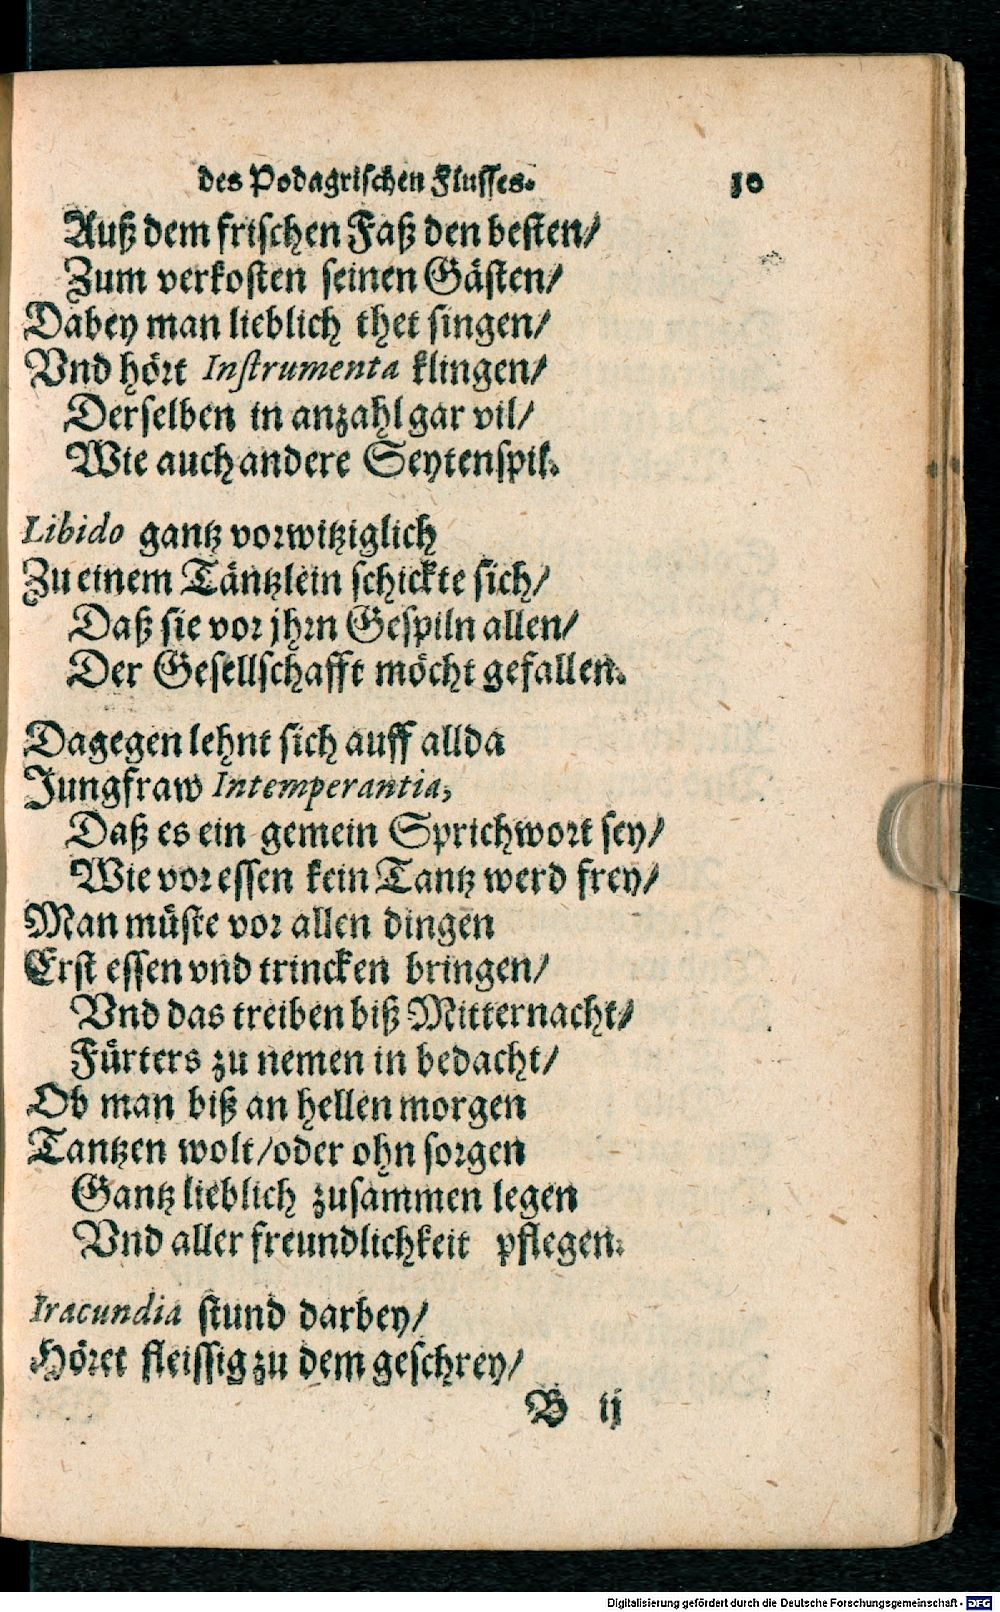 des Podagrischen Flusses. 10
Auß dem frischen Faß den besten/
Zum verkosten seinen Gästen/
Dabey man lieblich thet singen/
Vnd hört Instrumenta klingen/
Derselben in anzahl gar vil/
Wie auch andere Seytenspil.
Libido gantz vorwitziglich
Zu einem Täntzlein schickte sich/
Daß sie vor jhrn Gespiln allen/
Der Gesellschafft möcht gefallen.
Dagegen lehnt sich auff allda
Jungfraw Intemperantia,
Daß es ein gemein Sprichwort sey/
Wie vor essen kein Tantz werd frey/
Man müste vor allen dingen
Erst essen vnd trincken bringen/
Vnd das treiben biß Mitternacht/
Fürters zu nemen in bedacht/
Ob man biß an hellen morgen
Tantzen wolt/oder ohn sorgen
Gantz lieblich zusammen legen
Vnd aller freundlichkeit pflegen.
Iracundia stund darbey/
Höret fleissig zu dem geschrey/
B ij
Digitalisierung gefördert durch die Deutsche Forschungsgemeinschaft - DFG